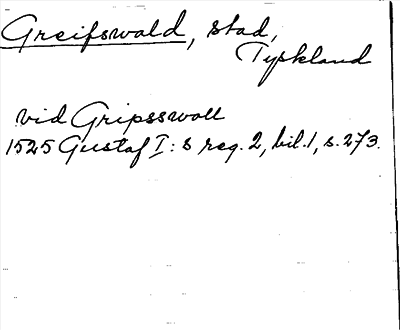 Greifswald, stad,
Tyskland
vid Gripsswoll
1525 Gustaf I:s reg. 2, bil. 1, s. 273.